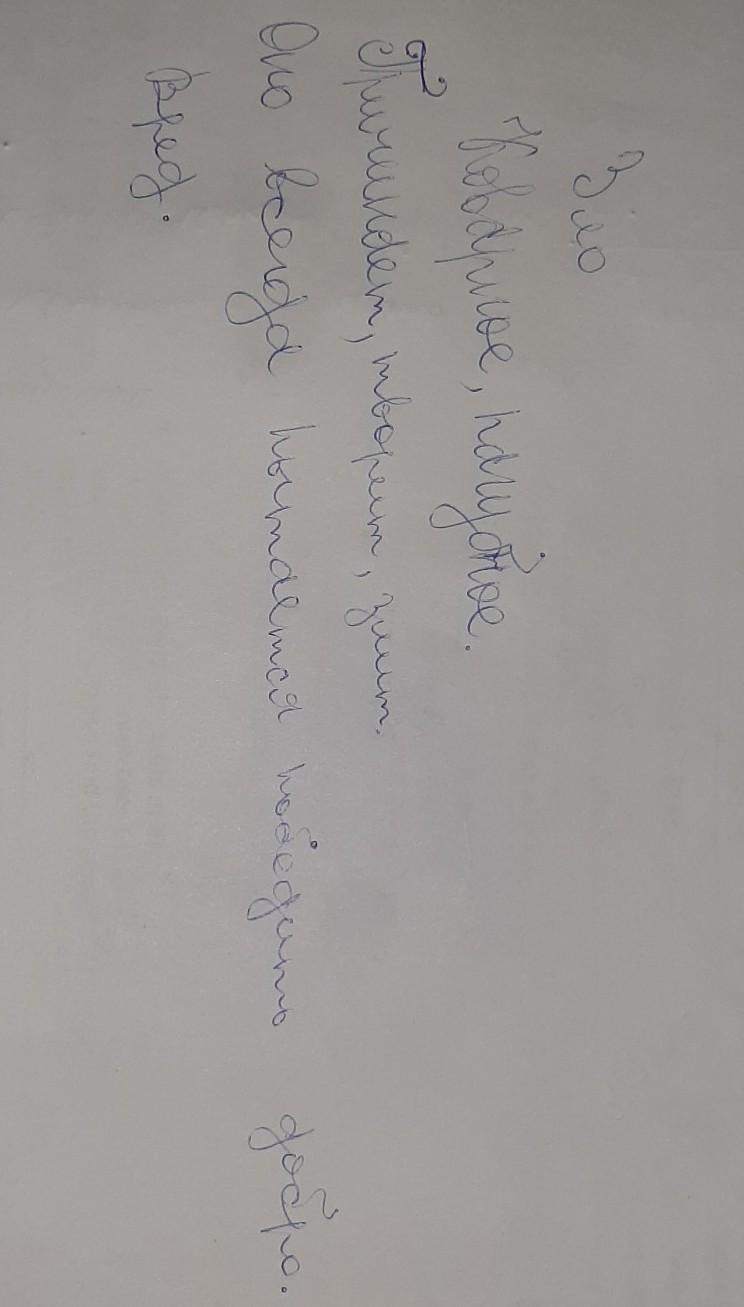 Зло
Коварное, пагубное.
Причиняет, творит, злит.
Оно всегда пытается победить добро.
Вред.